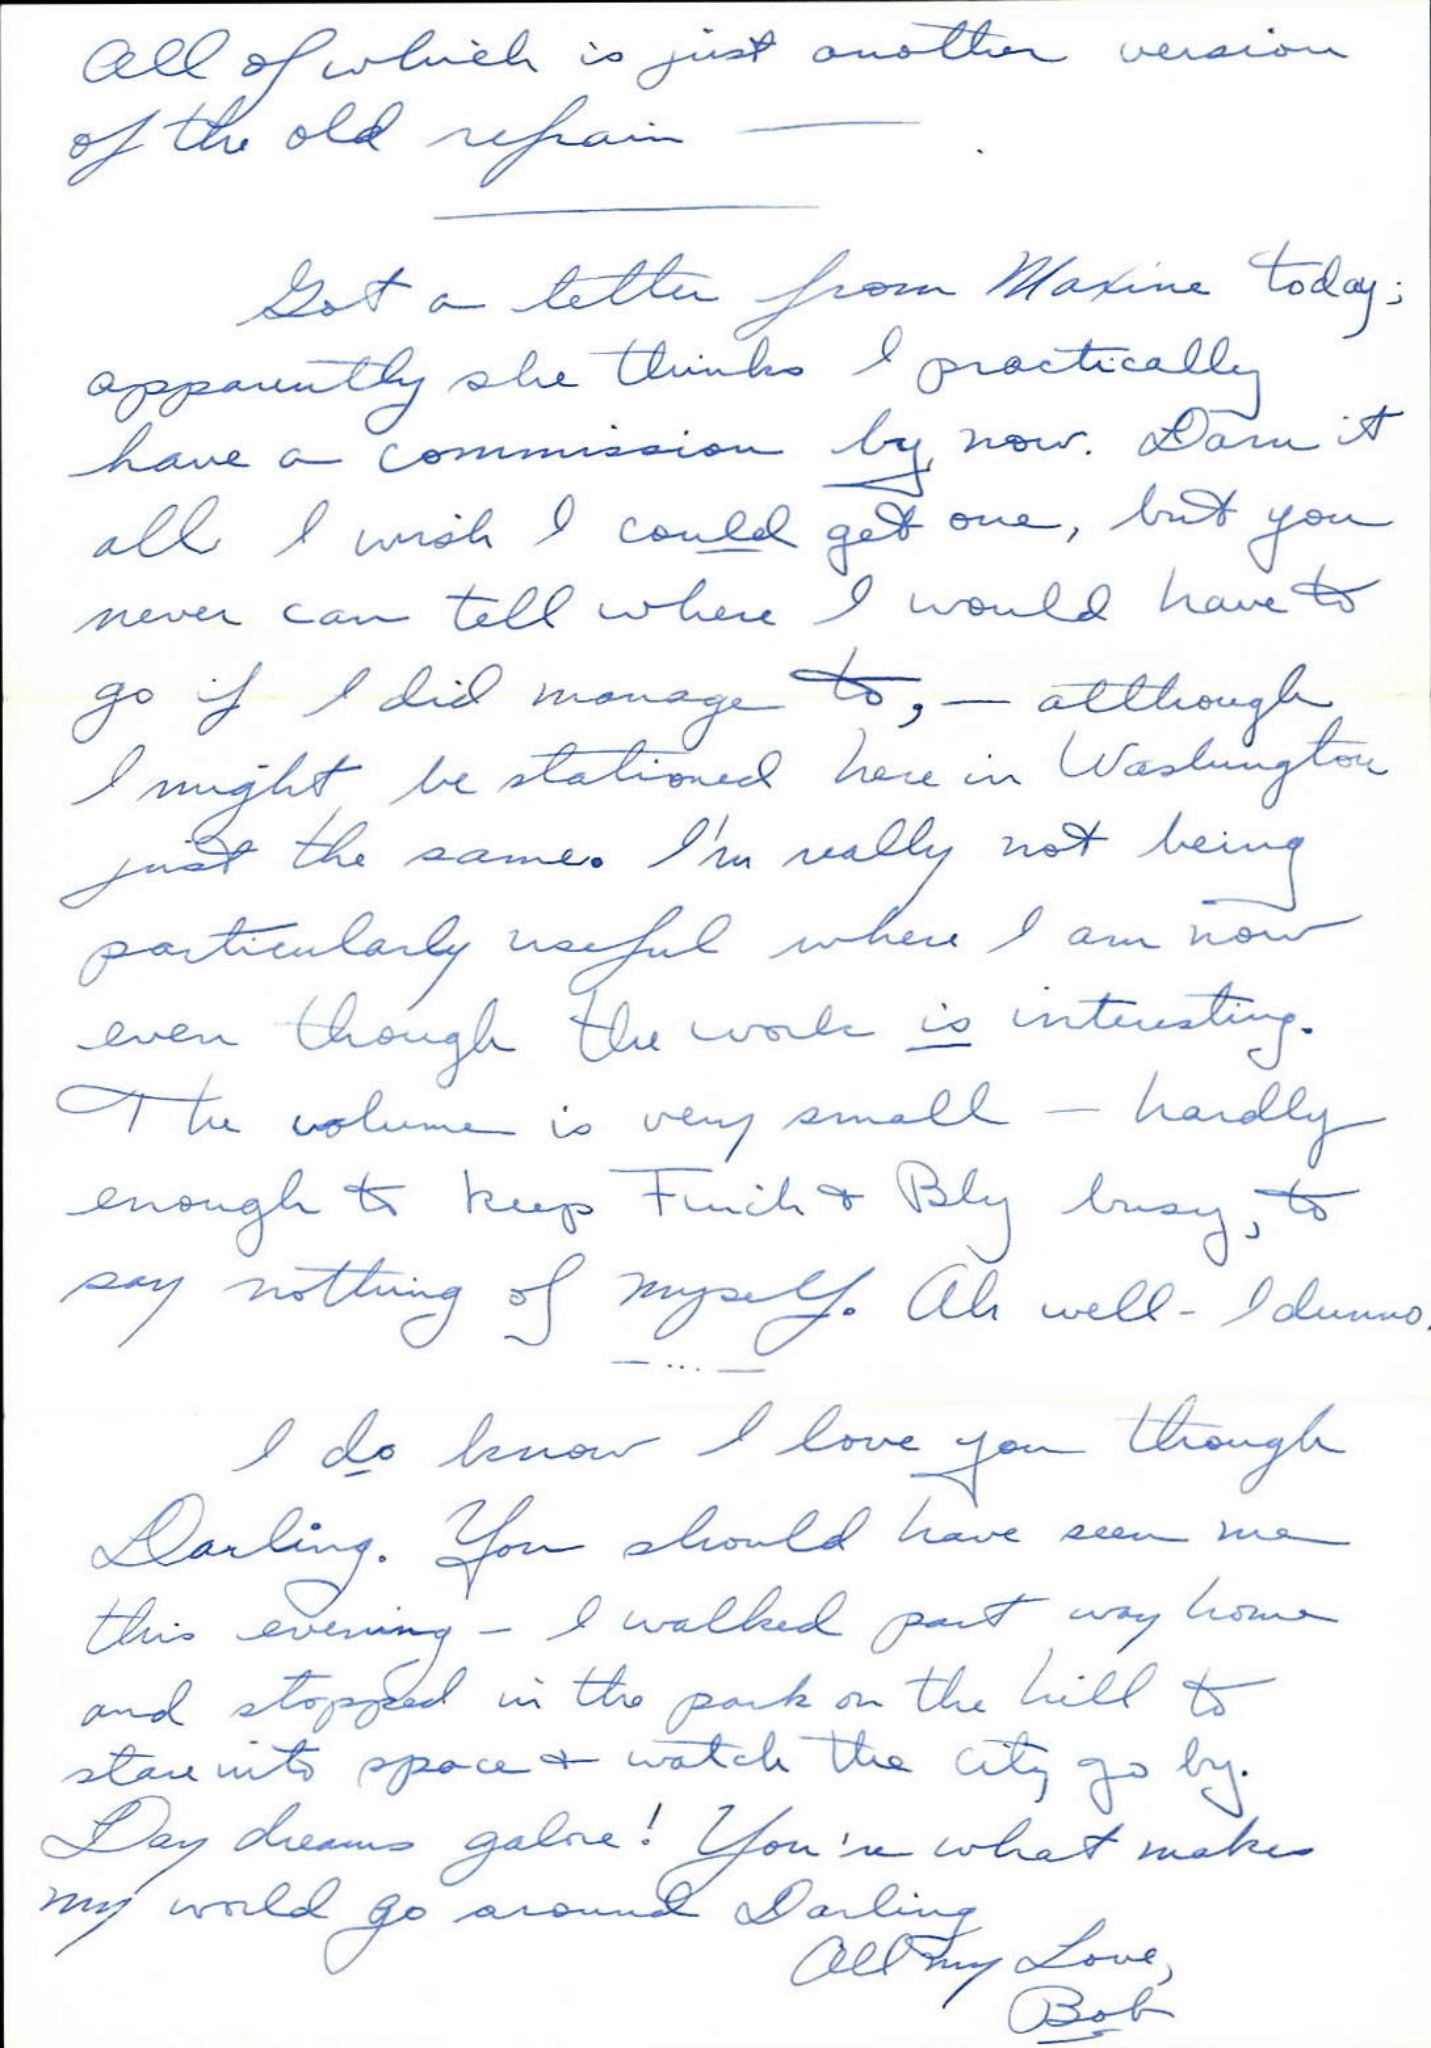 All of which is just another version
of the old refrain —
Got a letter from Maxine today;
apparently she thinks I practically
have a commission by now. Darn it
all I wish I could get one, but you
never can tell where I would have to
go if I did manage to, — although
I might be stationed here in Washington
just the same. I'm really not being
particularly useful where I am now
even though the work is interesting.
The volume is very small — hardly
enough to keep Finch & Bly busy, to
say nothing of myself. Ah well - I dunno.
— ... —
I do know I love you though
Darling. You should have seen me
this evening - I walked part way home
and stopped in the park on the hill to
stare into space & watch the city go by.
Day dreams galore! You're what makes
my world go around Darling
All my Love,
Bob